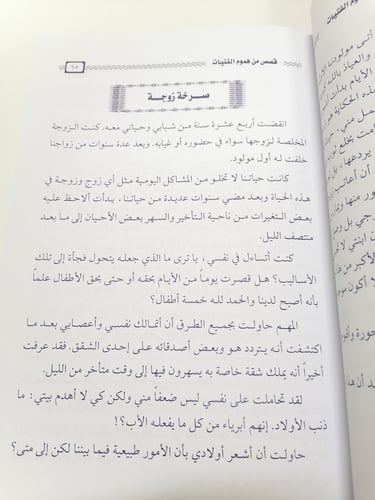 قصص من هموم الفتيات
٦٥
صرخة زوجة
انقضت أربع عشرة سنة من شبابي وحياتي معه. كنت الزوجة
المخلصة لزوجها سواء في حضوره أو غيابه. وبعد عدة سنوات من زواجنا
خلفت له أول مولود.
كانت حياتنا لا تخلو من المشاكل اليومية مثل أي زوج وزوجة في
هذه الحياة وبعد مضي سنوات عديدة من حياتنا، بدأت ألاحظ عليه
بعض التغيرات من ناحية التأخير والسهر بعض الأحيان إلى ما بعد
منتصف الليل.
كنت أتساءل في نفسي، يا ترى ما الذي جعله يتحول فجأة إلى تلك
الأساليب؟ هل قصرت يوماً من الأيام بحقه أو حتى بحق الأطفال علماً
بأنه أصبح لدينا والحمد لله خمسة أطفال؟
المهم حاولت بجميع الطرق أن أتمالك نفسي وأعصابي بعد ما
اكتشفت أنه يتردد هو وبعض أصدقائه على إحدى الشقق. فقد عرفت
أخيراً أنه يملك شقة خاصة به يسهرون فيها إلى وقت متأخر من الليل.
لقد تحاملت على نفسي ليس ضعفاً مني ولكن كي لا أهدم بيتي: ما
ذنب الأولاد. إنهم أبرياء من كل ما يفعله الأب؟!
حاولت أن أشعر أولادي بأن الأمور طبيعية فيما بيننا لكن إلى متى؟